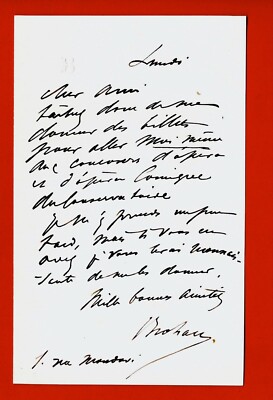 Lundi
cher ami
tâchez donc de me
donner des billets
pour aller moi même
aux concours d'opéra
et d'opéra Comique
du Conservatoire
je m'y prends un peu
tard, mais si vous en
avez je vous serai reconnais
sante de me les donner.
Mille bonnes amitiés
Brohan
1. rue Mondovi.